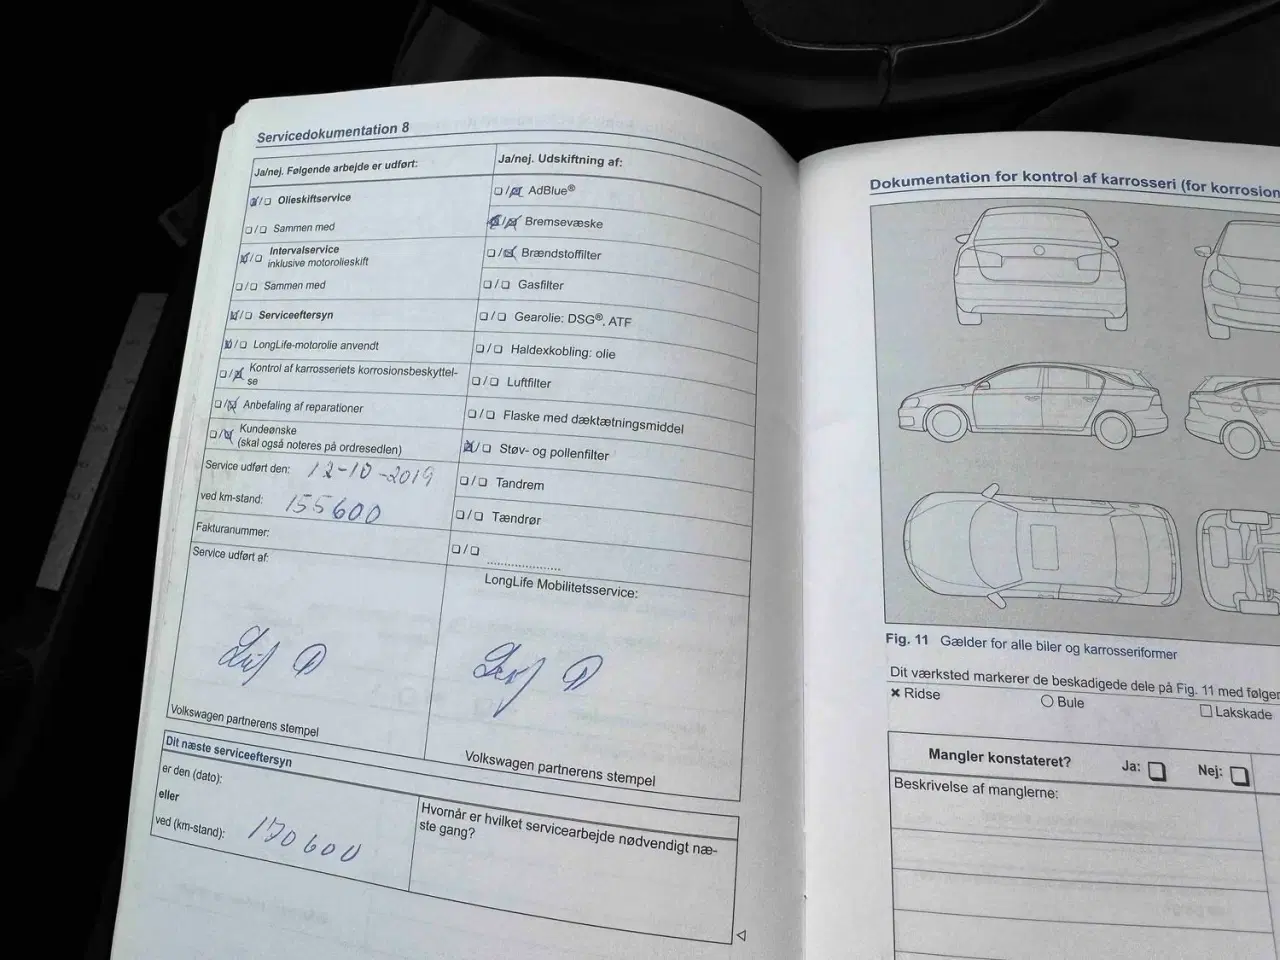 Servicedokumentation 8
Ja/nej. Følgende arbejde er udført:
☒/☐ Olieskiftservice
☐/☐ Sammen med
☒/☐ Intervalservice
inklusive motorolieskift
☐/☐ Sammen med
☒/☐ Serviceeftersyn
☒/☐ LongLife-motorolie anvendt
☐/☒ Kontrol af karrosseriets korrosionsbeskyttel-
se
☐/☒ Anbefaling af reparationer
☐/☒ Kundeønske
(skal også noteres på ordresedlen)
Service udført den: 12-10-2019
ved km-stand: 155600
Fakturanummer:
Service udført af:
Volkswagen partnerens stempel
Ja/nej. Udskiftning af:
☐/☒ AdBlue®
☒/☒ Bremsevæske
☐/☒ Brændstoffilter
☐/☐ Gasfilter
☐/☐ Gearolie: DSG®, ATF
☐/☐ Haldexkobling: olie
☐/☐ Luftfilter
☐/☐ Flaske med dæktætningsmiddel
☒/☐ Støv- og pollenfilter
☐/☐ Tandrem
☐/☐ Tændrør
☐/☐ ....................
LongLife Mobilitetsservice:
Volkswagen partnerens stempel
Dit næste serviceeftersyn
er den (dato):
eller
ved (km-stand): 170600
Hvornår er hvilket servicearbejde nødvendigt næ-
ste gang?
Dokumentation for kontrol af karrosseri (for korrosion
Fig. 11 Gælder for alle biler og karrosseriformer
Dit værksted markerer de beskadigede dele på Fig. 11 med følgen
× Ridse ○ Bule ☐ Lakskade
Mangler konstateret? Ja: ☐ Nej: ☐
Beskrivelse af manglerne: